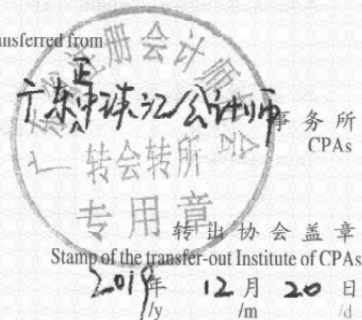 ansferred from
广东省注册会计师协会
正
广东中珠江会计师事务所
CPAs
转会转所
专用章
转出协会盖章
Stamp of the transfer-out Institute of CPAs
2019年 12月 20日
/y /m /d